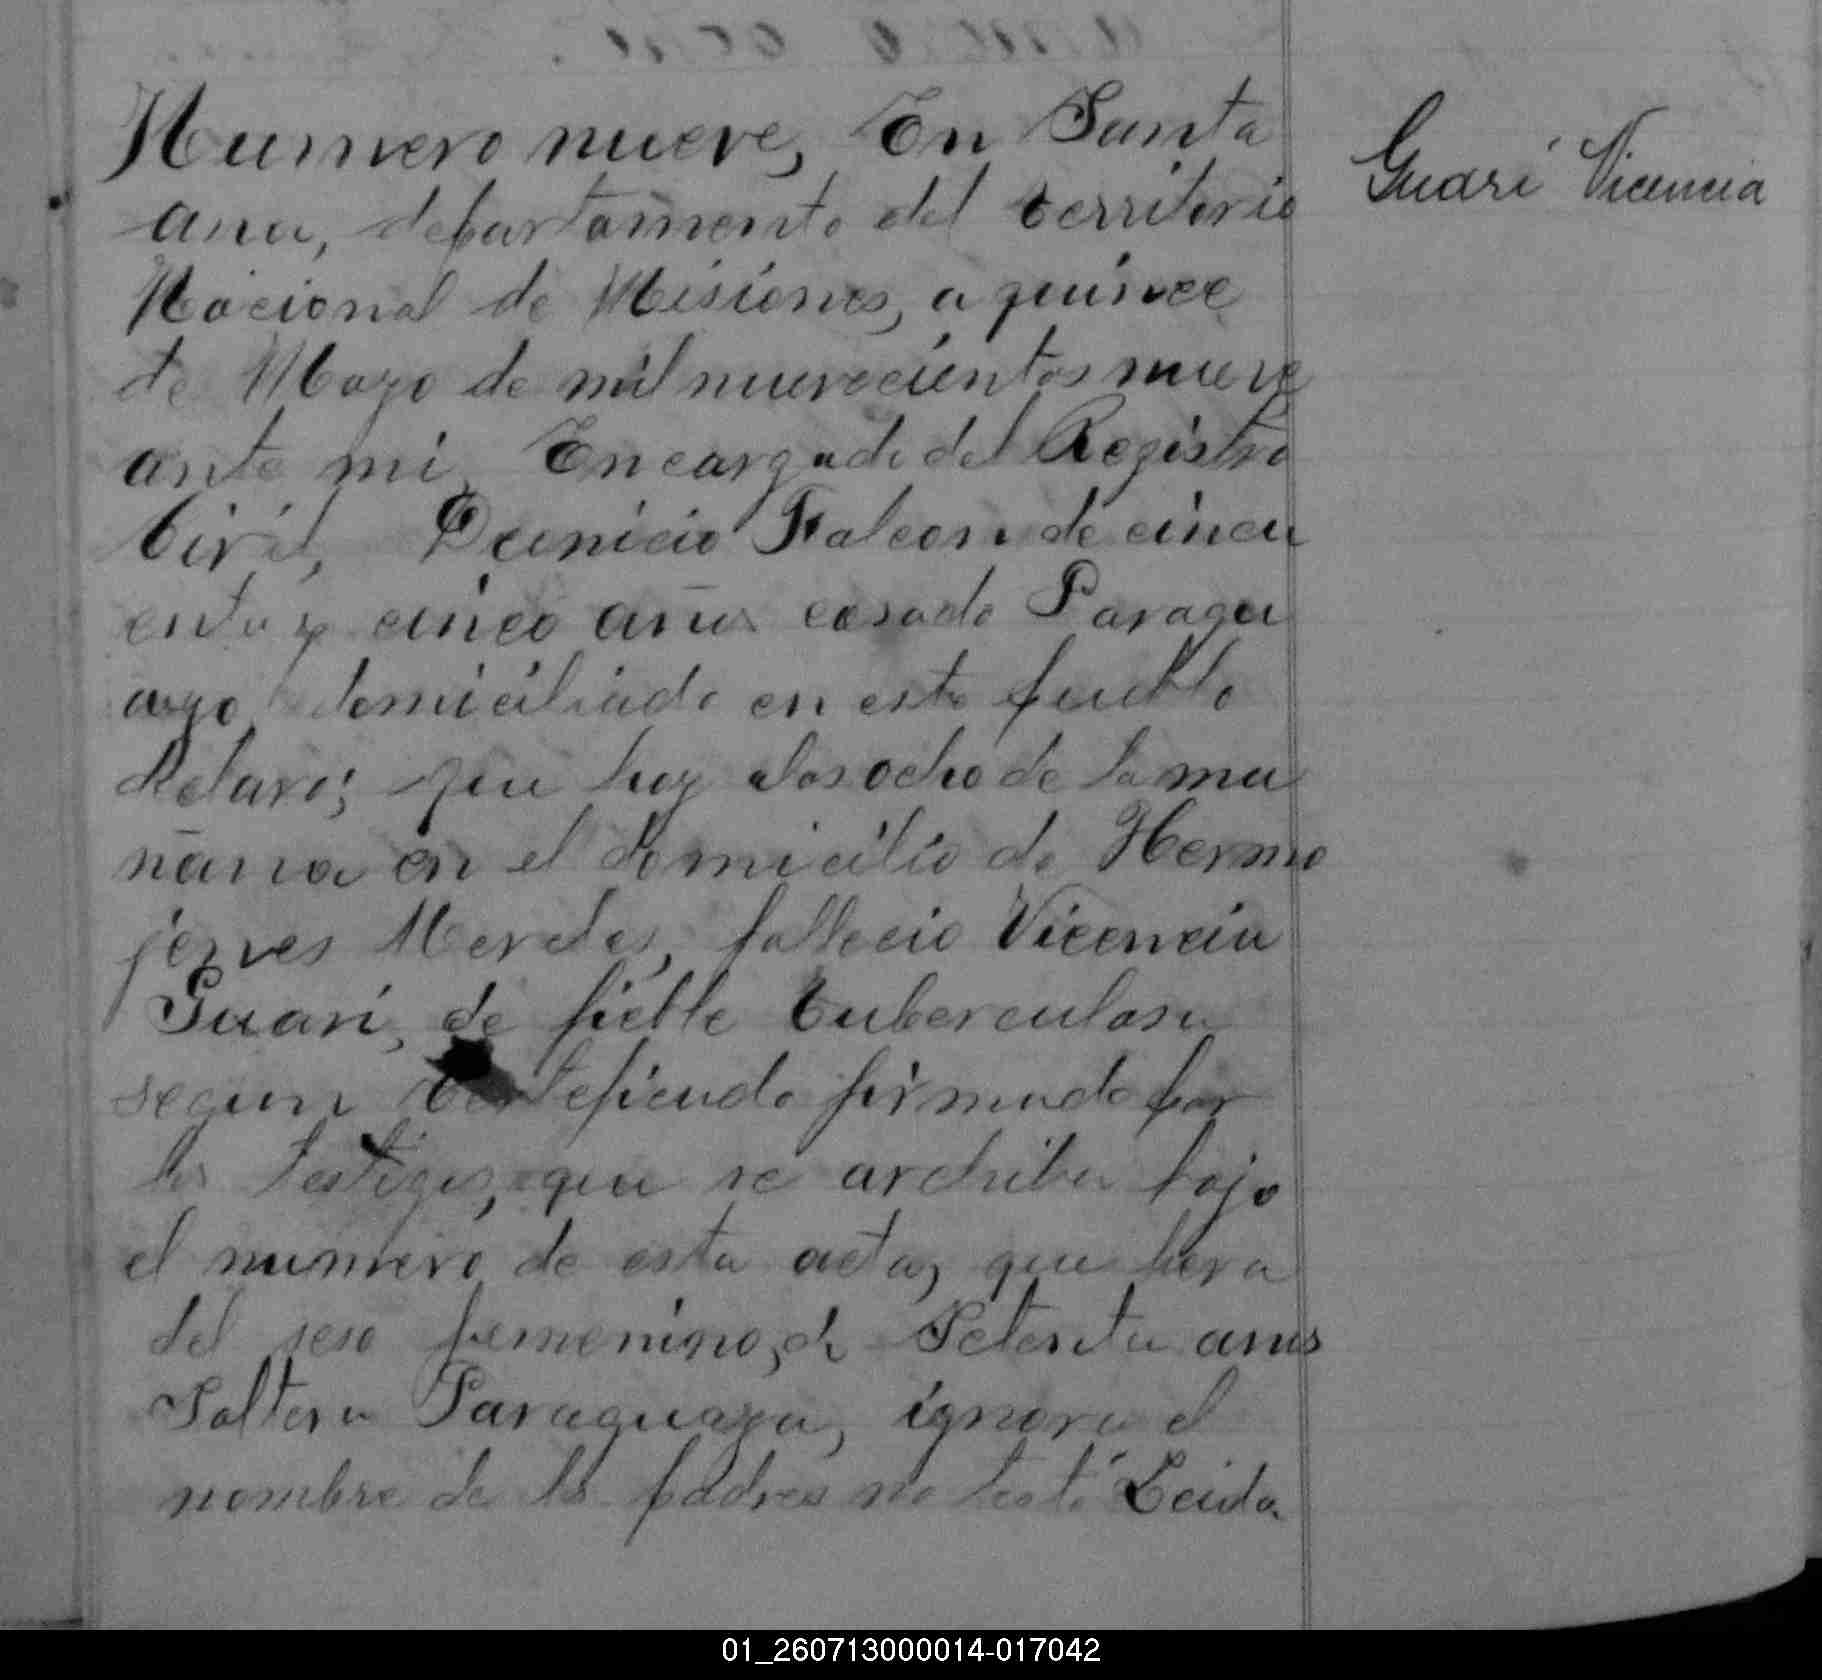 Numero nueve, En Santa
Guarí Vicencia
ana, departamento del territorio
Nacional de Misiones, a quince
de Mayo de mil nuevecientos nueve
ante mi, Encargado del Registro
Civil, Falcon de cincu
enta y cinco años casado Paragu
ayo domiciliado en este pueblo
declaro; que hoy alas ocho de la ma
ñana en el domicilio de Hermo
jenes fallecio Vicencia
Guari, de fiebre tuberculosa
segun Certeficado firmado por
los testigos, que se archiba bajo
el numero de esta acta, que hera
del seso femenino, de Setenta anos
Soltera Paraguaya, ignora el
nombre de los padres no testó Leida
01_260713000014-017042